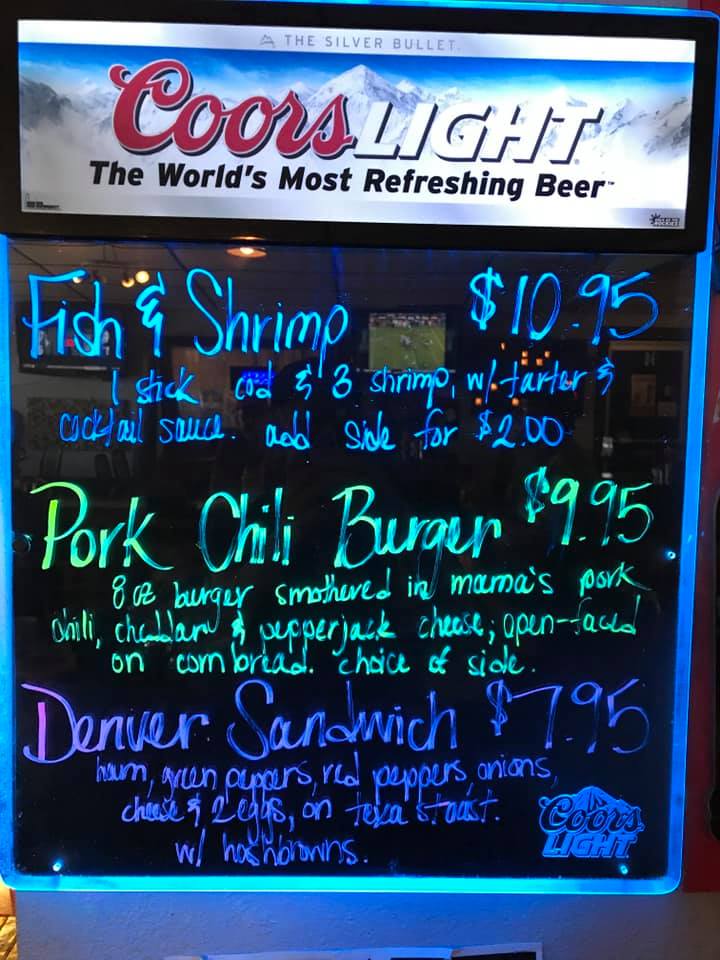 THE SILVER BULLET.
Coors LIGHT
The World's Most Refreshing Beer™
Fish & Shrimp $10.95
1 stick cod & 3 shrimp, w/ tarter &
cocktail sauce. add side for $2.00
Pork Chili Burger $9.95
8 oz burger smothered in mama's pork
chili, cheddar & pepperjack cheese, open-faced
on cornbread. choice of side.
Denver Sandwich $7.95
ham, green peppers, red peppers, onions,
cheese & 2 eggs, on texa stoast.
w/ hashbrowns.
Coors
LIGHT